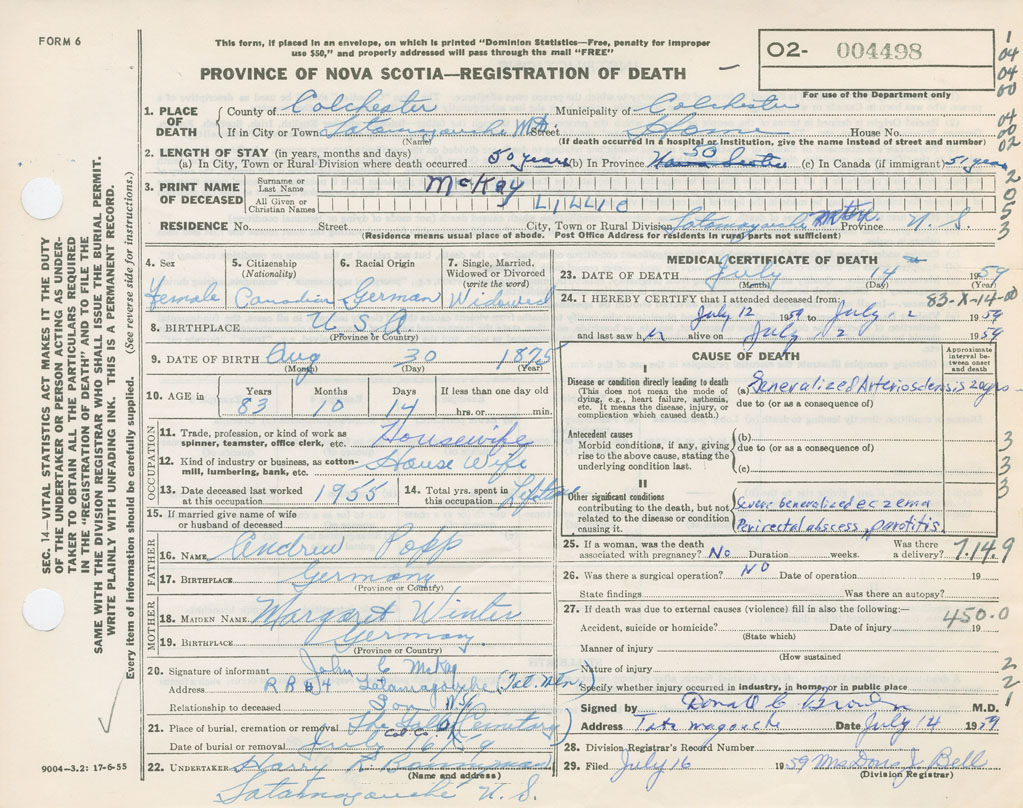 FORM 6
This form, if placed in an envelope, on which is printed "Dominion Statistics—Free, penalty for improper
use $50," and properly addressed will pass through the mail "FREE"
PROVINCE OF NOVA SCOTIA—REGISTRATION OF DEATH
02- 004498
For use of the Department only
1
04
04
00
04
00
02
2
0
5
3
1. PLACE OF DEATH
County of Colchester Municipality of Colchester
If in City or Town Tatamagouche Mtn. Street Home House No.
(Name) (If death occurred in a hospital or institution, give the name instead of street and number)
2. LENGTH OF STAY (in years, months and days)
(a) In City, Town or Rural Division where death occurred 50 years (b) In Province 50 Nova Scotia (c) In Canada (if immigrant) 51 years
3. PRINT NAME OF DECEASED
Surname or Last Name McKay
All Given or Christian Names LILLIE
RESIDENCE No. Street City, Town or Rural Division Tatamagouche Mtn. Province N. S.
(Residence means usual place of abode. Post Office Address for residents in rural parts not sufficient)
4. Sex Female
5. Citizenship (Nationality) Canadian
6. Racial Origin German
7. Single, Married, Widowed or Divorced (write the word) Widowed
8. BIRTHPLACE U S A
(Province or Country)
9. DATE OF BIRTH Aug 30 1875
(Month) (Day) (Year)
10. AGE in Years 83 Months 10 Days 14 If less than one day old hrs. or min.
OCCUPATION
11. Trade, profession, or kind of work as spinner, teamster, office clerk, etc. Housewife
12. Kind of industry or business, as cotton-mill, lumbering, bank, etc. House Wife
13. Date deceased last worked at this occupation 1955
14. Total yrs. spent in this occupation Lifetime
15. If married give name of wife or husband of deceased
FATHER
16. NAME Andrew Popp
17. BIRTHPLACE Germany
(Province or Country)
MOTHER
18. MAIDEN NAME Margaret Winter
19. BIRTHPLACE Germany
(Province or Country)
20. Signature of informant John C McKay
Address R R # 4 Tatamagouche (Tat. Mtn.) N.S.
Relationship to deceased Son
21. Place of burial, cremation or removal The Falls (Cemetery) Col. Co.
Date of burial or removal July 16/59
22. UNDERTAKER Harry R
(Name and address)
Tatamagouche N. S.
MEDICAL CERTIFICATE OF DEATH
23. DATE OF DEATH July 14 1959
(Month) (Day) (Year)
83-X-14-00
24. I HEREBY CERTIFY that I attended deceased from:
July 12 1959 to July 12 1959
and last saw h alive on July 12 1959
CAUSE OF DEATH
Approximate interval between onset and death
I
Disease or condition directly leading to death
(This does not mean the mode of dying, e.g., heart failure, asthenia, etc. It means the disease, injury, or complication which caused death.)
(a) Generalized Arteriosclerosis 20 yrs
due to (or as a consequence of)
Antecedent causes
Morbid conditions, if any, giving rise to the above cause, stating the underlying condition last.
(b)
due to (or as a consequence of)
(c)
3
3
3
II
Other significant conditions
contributing to the death, but not related to the disease or condition causing it.
Severe Generalized eczema
Perirectal abscess, parotitis.
25. If a woman, was the death associated with pregnancy? No Duration weeks. Was there a delivery?
7.14.9
26. Was there a surgical operation? NO Date of operation 19
State findings Was there an autopsy?
27. If death was due to external causes (violence) fill in also the following:—
450.0
Accident, suicide or homicide? Date of injury 19
(State which)
Manner of injury
(How sustained
Nature of injury
Specify whether injury occurred in industry, in home, or in public place
2
2
1
Signed by Donald C Brown M.D.
Address Tatamagouche Date July 14 1959
28. Division Registrar's Record Number
29. Filed July 16 1959 Mrs Doris J. Bell
(Division Registrar)
SEC. 14—VITAL STATISTICS ACT MAKES IT THE DUTY
OF THE UNDERTAKER OR PERSON ACTING AS UNDER-
TAKER TO OBTAIN ALL THE PARTICULARS REQUIRED
IN THE "REGISTRATION OF DEATH" AND TO FILE THE
SAME WITH THE DIVISION REGISTRAR WHO SHALL ISSUE THE BURIAL PERMIT.
WRITE PLAINLY WITH UNFADING INK. THIS IS A PERMANENT RECORD.
Every item of information should be carefully supplied. (See reverse side for instructions.)
9004-3.2: 17-6-55